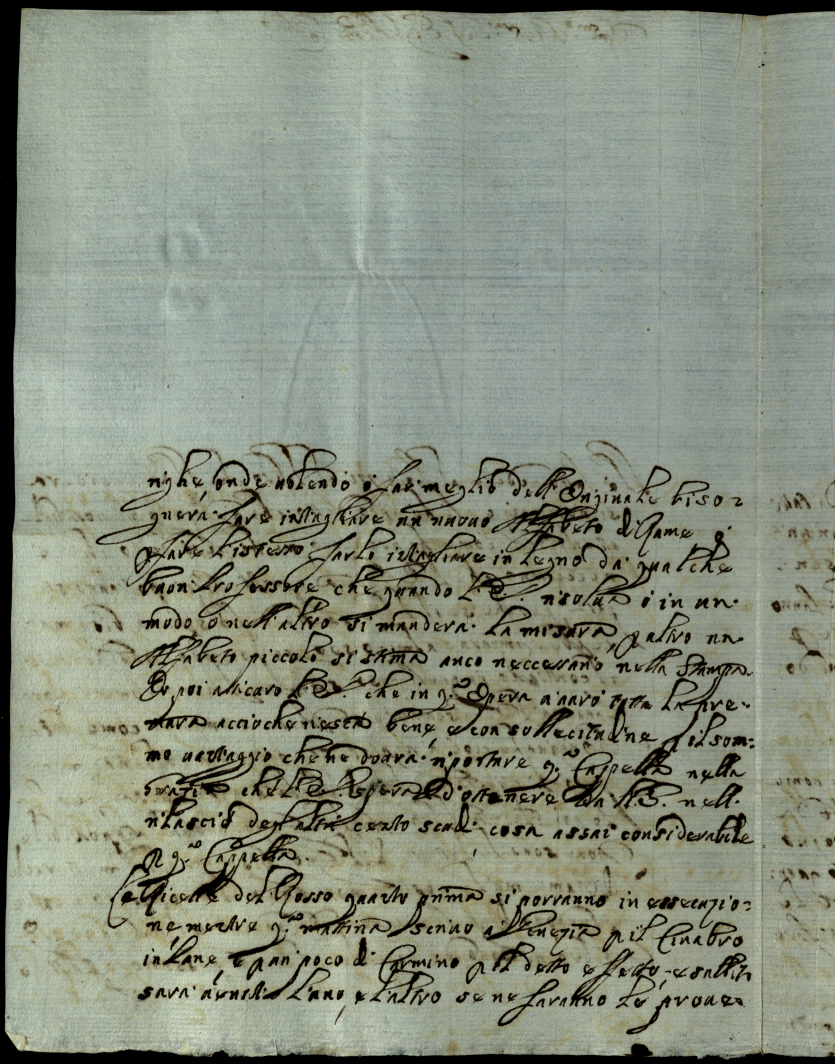 righe, onde volendo si far meglio dell'Originale biso=
gnerà fare intagliare un nuovo Alfabeto di Rame ò
farlo intagliare in legno da qualche
buon Professore che quando risolva ò in un
modo ò nell'altro si manderà la misura, p altro un
Alfabeto piccolo si stima anco neccessario nella Stampa.
Io poi assicuro che in q.ta Opera avarò tutta la pre=
mura acciochè riesca bene, e con sollecitudine p il som=
mo vantaggio che ne dovrà riportare q.ta Cappella nella
grazia che spera d'ottenere da nell
rilascio degl'altri cento scudi cosa assai considerabile
p q.ta Cappella.
Le Ricette del Rosso quanto prima si porranno in essecuzio=
ne mentre q.ta mattina scrivo a Venezia p il Cinabro
in Pane, e p un poco di Carmino p il detto effetto, e subito
sarà l'uno, e l'altro se ne faranno le prove